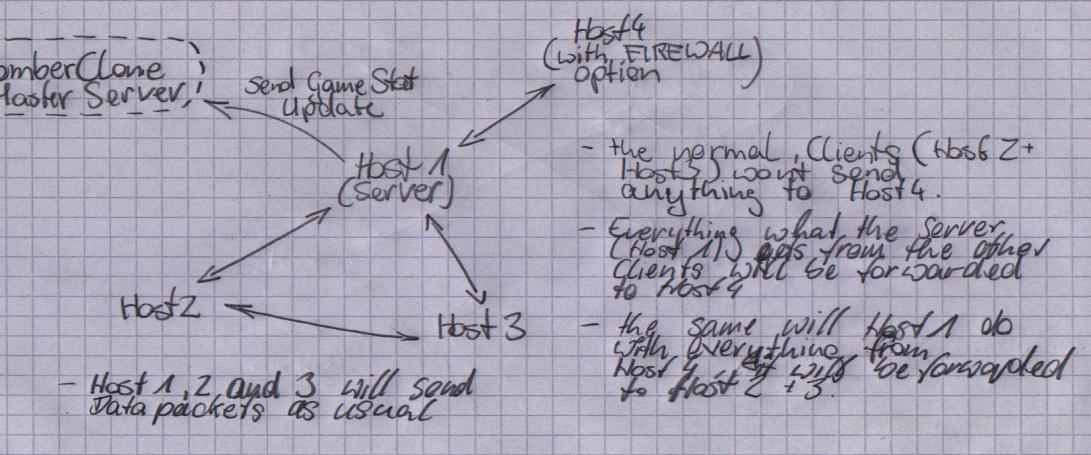 omberClone
laster Server
Send Game Stat
Update
Host4
(with FIREWALL)
option
Host 1
(Server)
Host2
Host 3
- Host 1, 2 and 3 will send
Data packets as usual
- the normal Clients (Host 2+
Host3) wont send
anything to Host4.
- Everything what the Server
(Host 1) gets from the other
Clients will be forwarded
to Host4
- the same will Host 1 do
with everything from
Host 4 it will be forwarded
to Host 2 + 3.